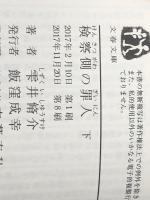 文春文庫
本書の無断複写は著作権法上での例外を除き
また、私的使用以外のいかなる電子的複製行
ておりません。
けんさつがわ ざいにん
検察側の罪人 下
2017年2月10日 第1刷
2017年11月20日 第8刷
著者 雫井脩介
発行者 飯窪成幸